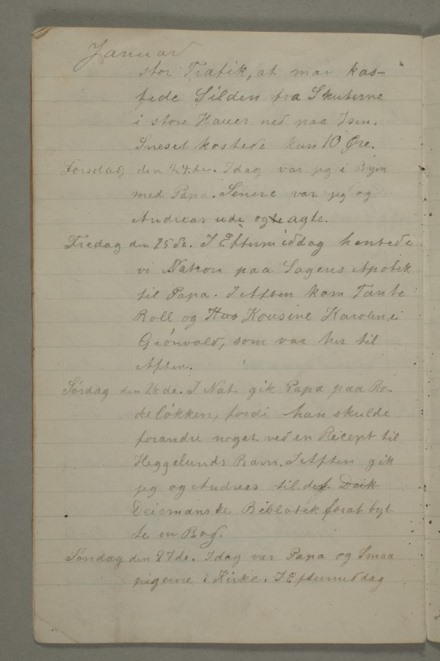 Januar
stor Trafik, at man kas-
tede Silden fra Skuterne
i store Hauer ned paa Isen.
Sneset kostede kun 10 Øre.
Torsdag den 24de. Idag var jeg i Byen
med Papa. Senere var jeg og
Andreas ude og agte.
Fredag den 25de. I Eftermiddag hentede
vi Natron paa Sagens Apotek
til Papa. I Aften kom Tante
Roll og Kousine Karoline
Grönvold, som var her til
Aften.
Lørdag den 26de. I Nat gik Papa paa Ro-
deløkken, fordi han skulde
forandre noget ved en Recept til
Heggelunds Barn. I Aften gik
jeg og Andreas til det
Deicmanske Bibliotek forat byt
te en Bog.
Søndag den 27de. Idag var Papa og Smaa
pigerne i Kirke. I Eftermiddag